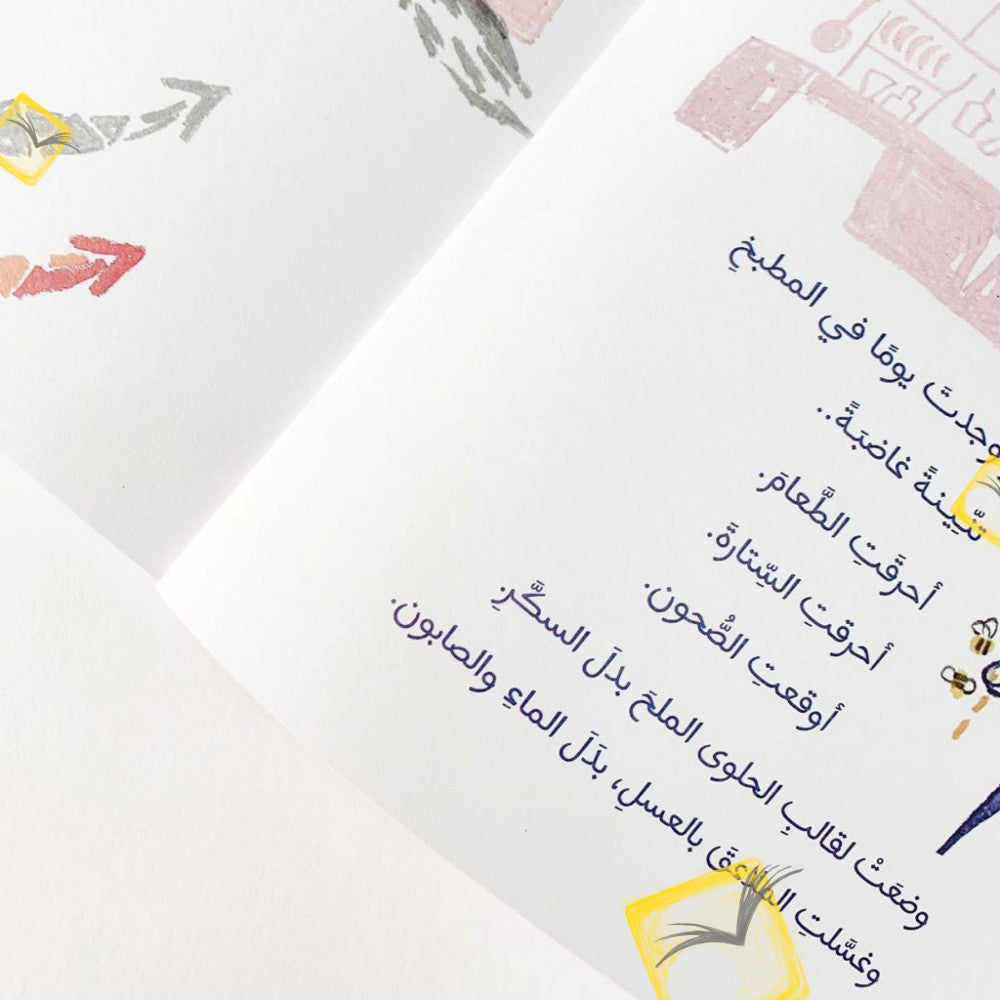 وجدتَ يومًا في المطبخِ
تنّينةً غاضبَةً..
أحرقَتِ الطَّعامَ.
أحرقتِ السِّتارةَ.
أوقعتِ الصُّحون.
وضعَتْ لقالبِ الحلوى الملحَ بدلَ السكَّرِ.
وغسَّلتِ الملاعقَ بالعسلِ، بدَلَ الماءِ والصابون.